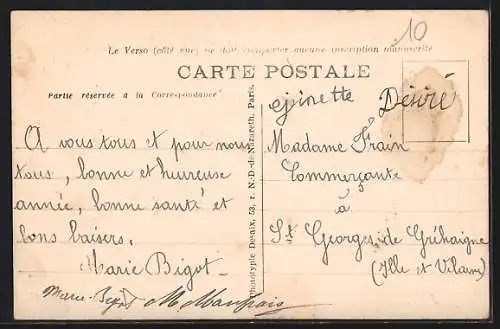 10
Le Verso (côté vue) ne doit comporter aucune inscription manuscrite
CARTE POSTALE
Partie réservée à la Correspondance
ginette Désiré
A vous tous et pour nous
tous, bonne et heureuse
année, bonne santé et
bons baisers.
Marie Bigot
Marie Bigot M. Maupais
Phototypie Desaix, 53, r. N.-D.-de-Nazareth, Paris.
Madame Frain
Commerçante
à
St Georges de Gréhaigne
(Ille et Vilaine)